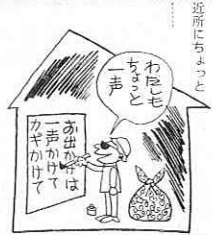 近所にちょっと
……
わたしも
ちょっと
一声
お出かけは
一声かけて
カギかけて